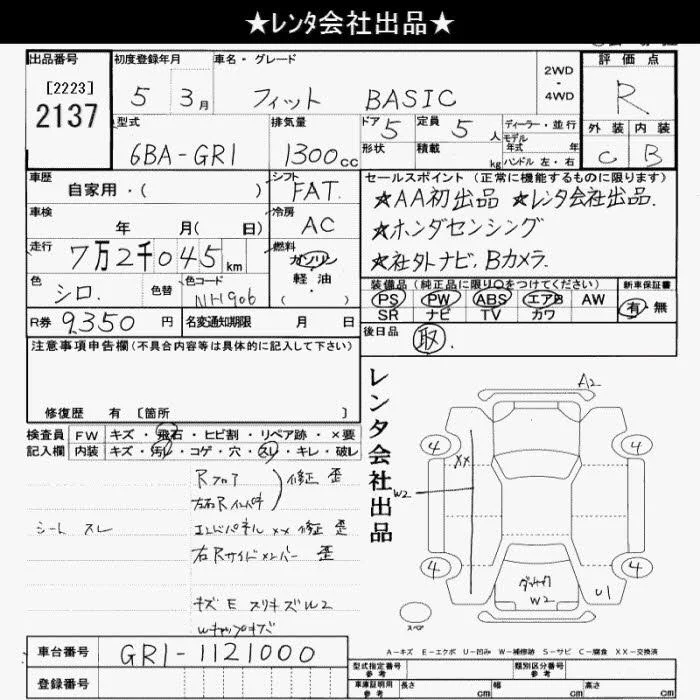 ★レンタ会社出品★
出品番号
[2223]
2137
初度登録年月
5 3月
車名・グレード
フィット BASIC
2WD
・
4WD
評価点
R
外装 内装
C B
型式
6BA-GR1
排気量
1300cc
ドア 5
形状
定員 5人
積載 kg
ディーラー・並行
モデル
年式 年
ハンドル 左・右
車歴
自家用・( )
シフト
FAT.
車検
年 月( 日)
冷房
AC
走行
7万2千045km
燃料
ガソリン
軽油
( )
色
シロ.
色替
色コード
NH906
R券 9,350円
名変通知期限 月 日
セールスポイント(正常に機能するものに限ります)
★AA初出品 ★レンタ会社出品.
★ホンダセンシング
★社外ナビ,Bカメラ.
装備品(純正品に限り○をつけてください)
新車保証書
PS PW ABS エアB AW
SR ナビ TV カワ
有・無
後日品
取.
注意事項申告欄(不具合内容等は具体的に記入して下さい)
修復歴 有 [箇所 ]
検査員
記入欄
FW キズ・飛石・ヒビ割・リペア跡・×要
内装 キズ・汚レ・コゲ・穴・スレ・キレ・破レ
Rフロア
左右Rインパネ
修正 歪
シート スレ
エンドパネル ×× 修正 歪
右Rサイドメンバー 歪
キズ E スリキズ W2
Wキャップキズ
レンタ会社出品
A2
4
4
××
W2
4
4
W2
U1
スペア
A-キズ E-エクボ U-凹み W-補修跡 S-サビ C-腐食 XX-交換済
車台番号
GR1-1121000
登録番号
型式指定番号
参考
類別区分番号
参考
車庫証明用
参考
長さ cm
幅 cm
高さ cm